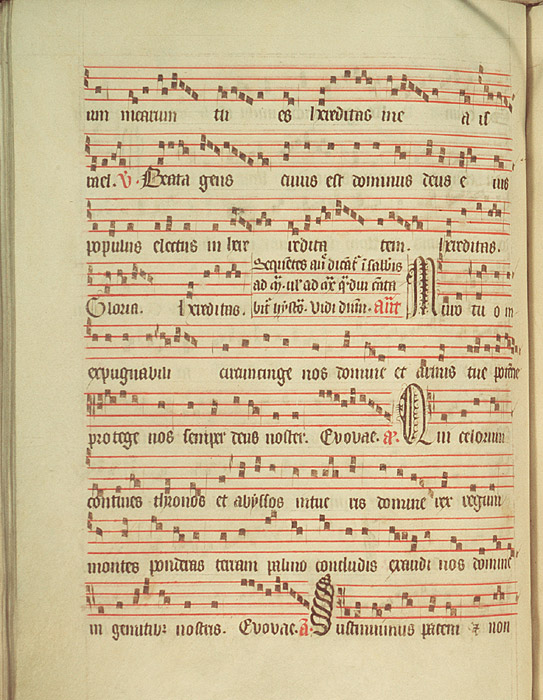 um mearum tu es hereditas me a is
rael. V. Beata gens cuius est dominus deus e ius
populus electus in here redita tem. hereditas.
Gloria. hereditas.
Sequētes añ dicāt ī
ad ad
Vidi dnm. ant
Muro tu o in
expugnabili circumcinge nos domine et armis tue potētie
protege nos semper deus noster. Evovae. a. Qui celorum
contines thronos et abyssos intue ris domine rex regum
montes ponderas terram palmo concludis exaudi nos domine
in gemitibz nostris. Evovae. a Sustinuimus pacem et non